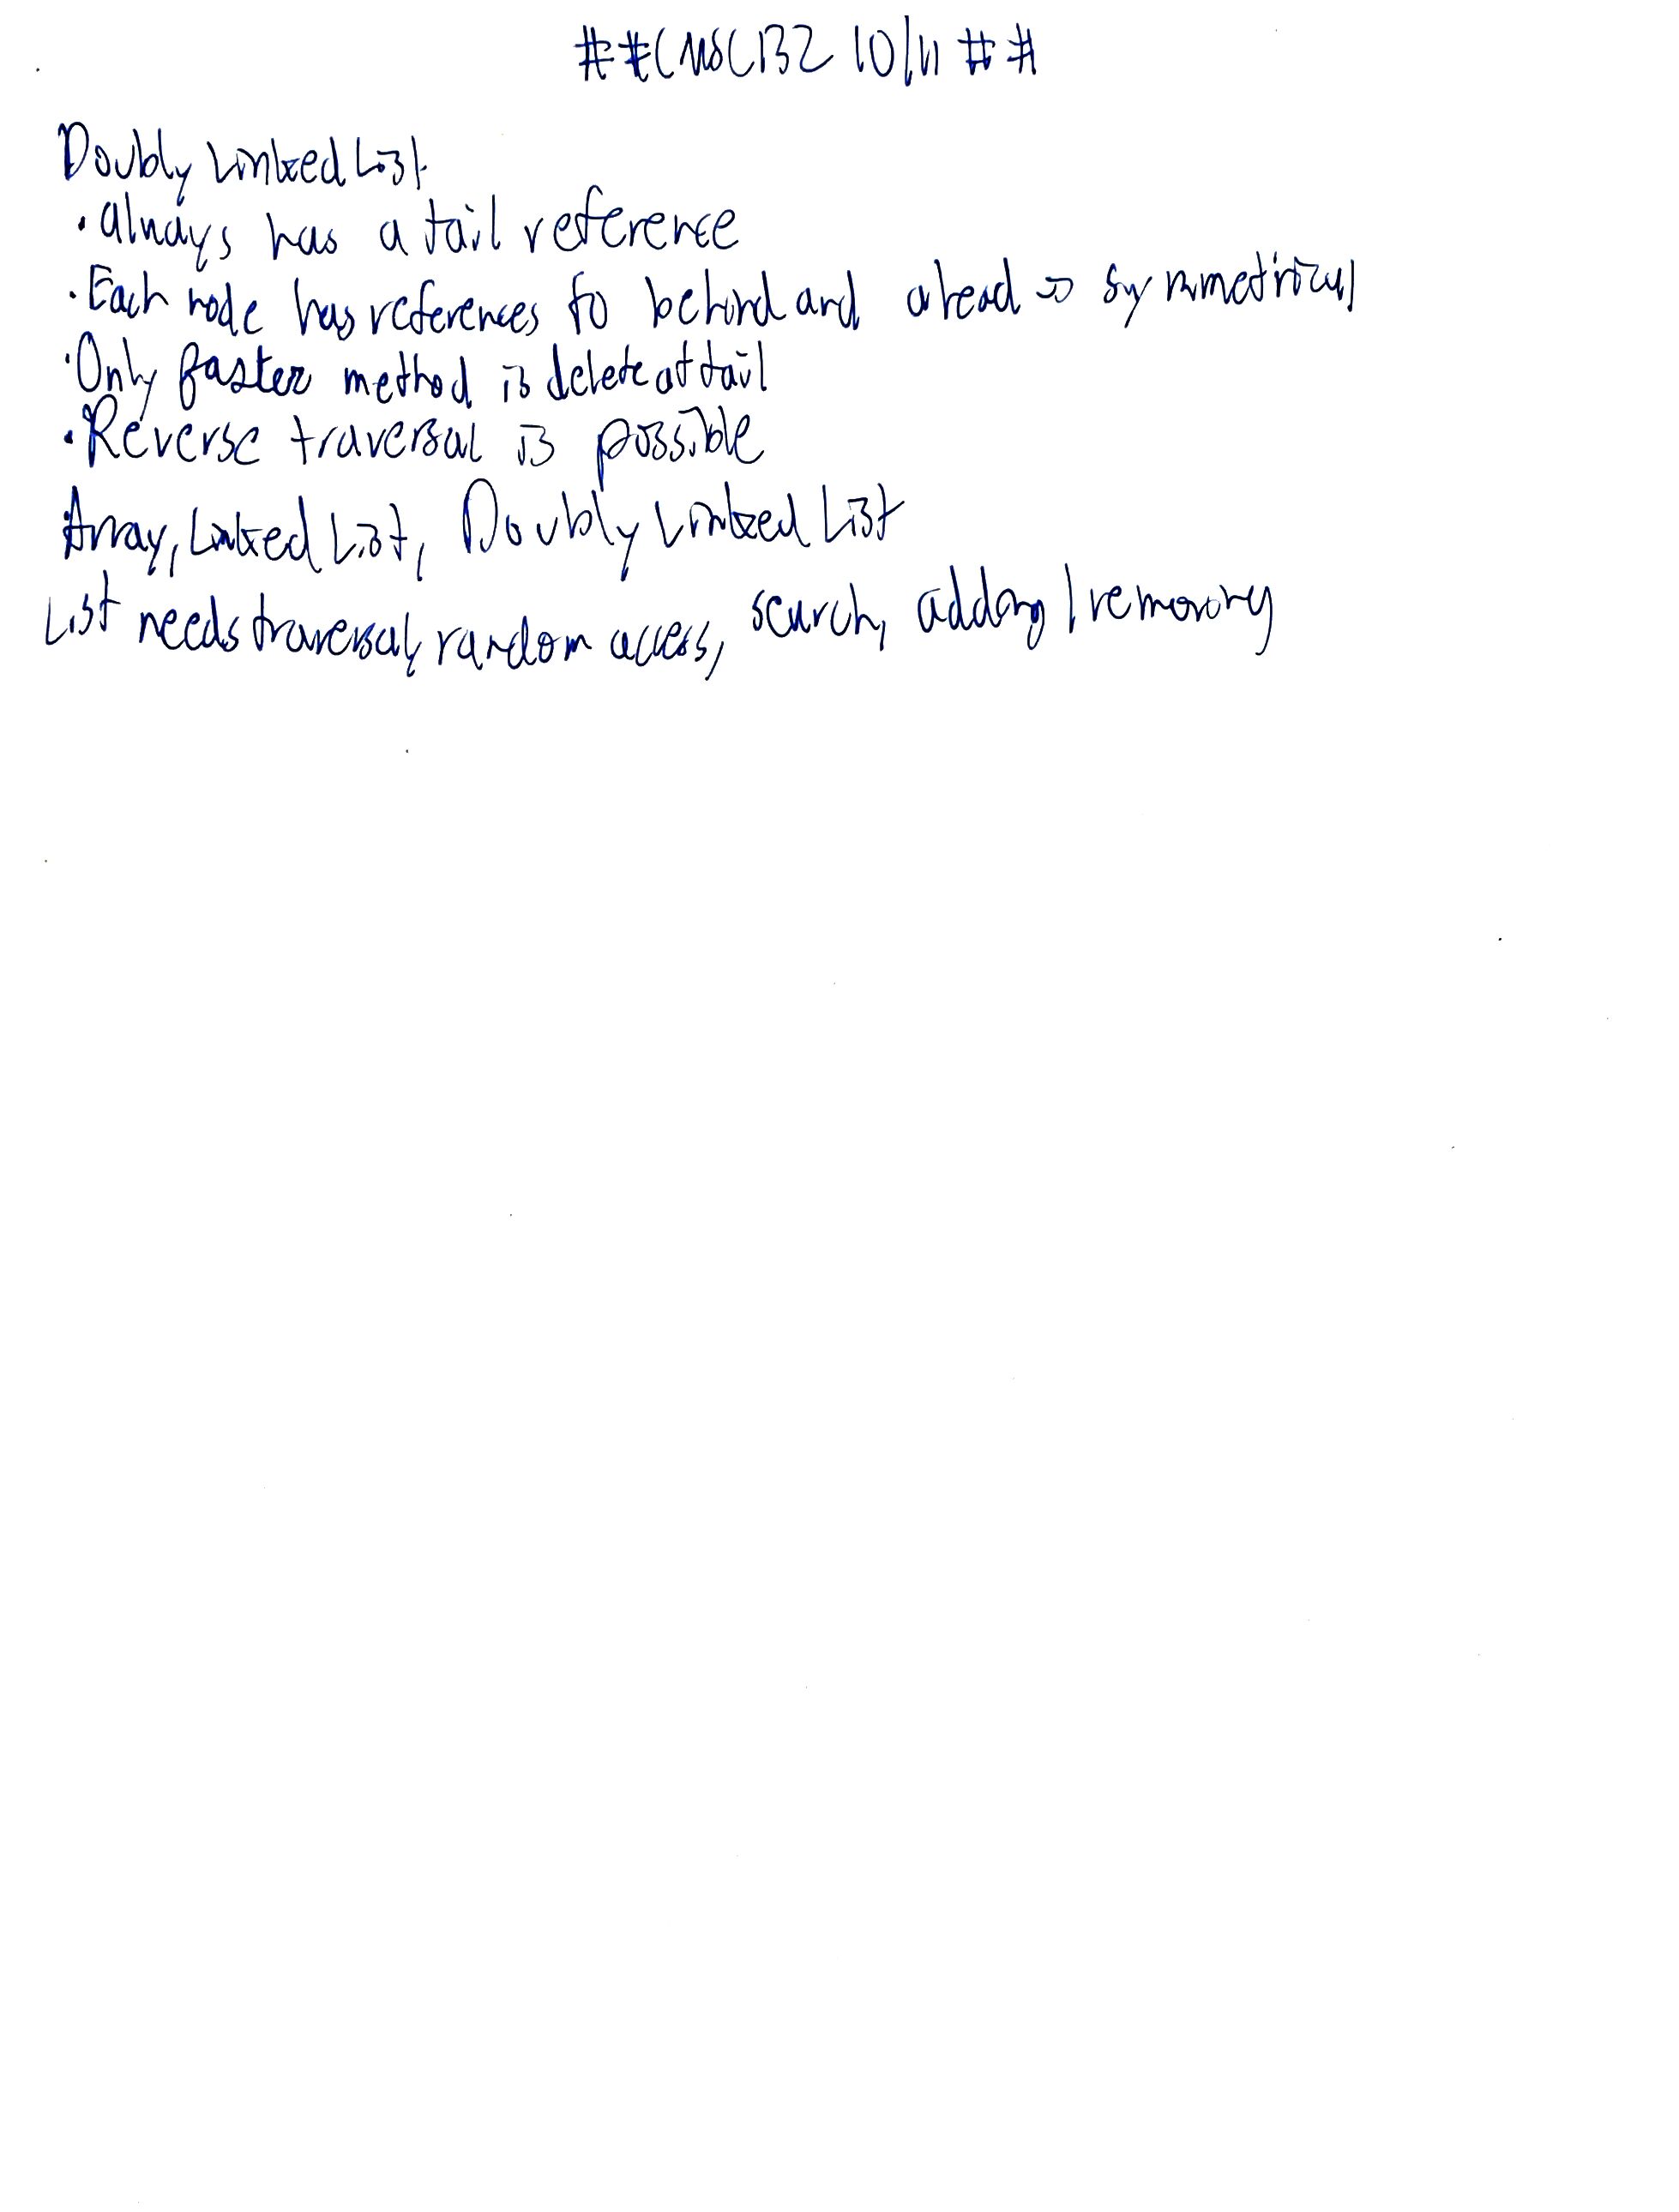 ##CMSC132 10/11##
Doubly Linked List
• always has a tail reference
• Each node has references to behind and ahead => symmetrical
• Only faster method is delete at tail
• Reverse traversal is possible
Array, Linked List, Doubly Linked List
List needs traversal, random access, search, adding/removing